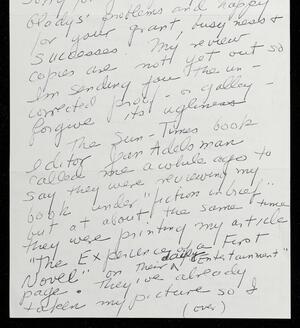 Sorry for
Gladys' problems and happy
for your grant, busyness &
successes. My review
copies are not yet out so
I'm sending you the un-
corrected proof - or galley -
forgive its ugliness
The Sun-Times book
editor Dan Adelsman
called me a while ago to
say they were reviewing my
book under "fiction in brief"
but at about the same time
they were printing my article
"The Experience of a First
Novel" on their daily "Entertainment"
page. They've already
taken my picture so I
(over)